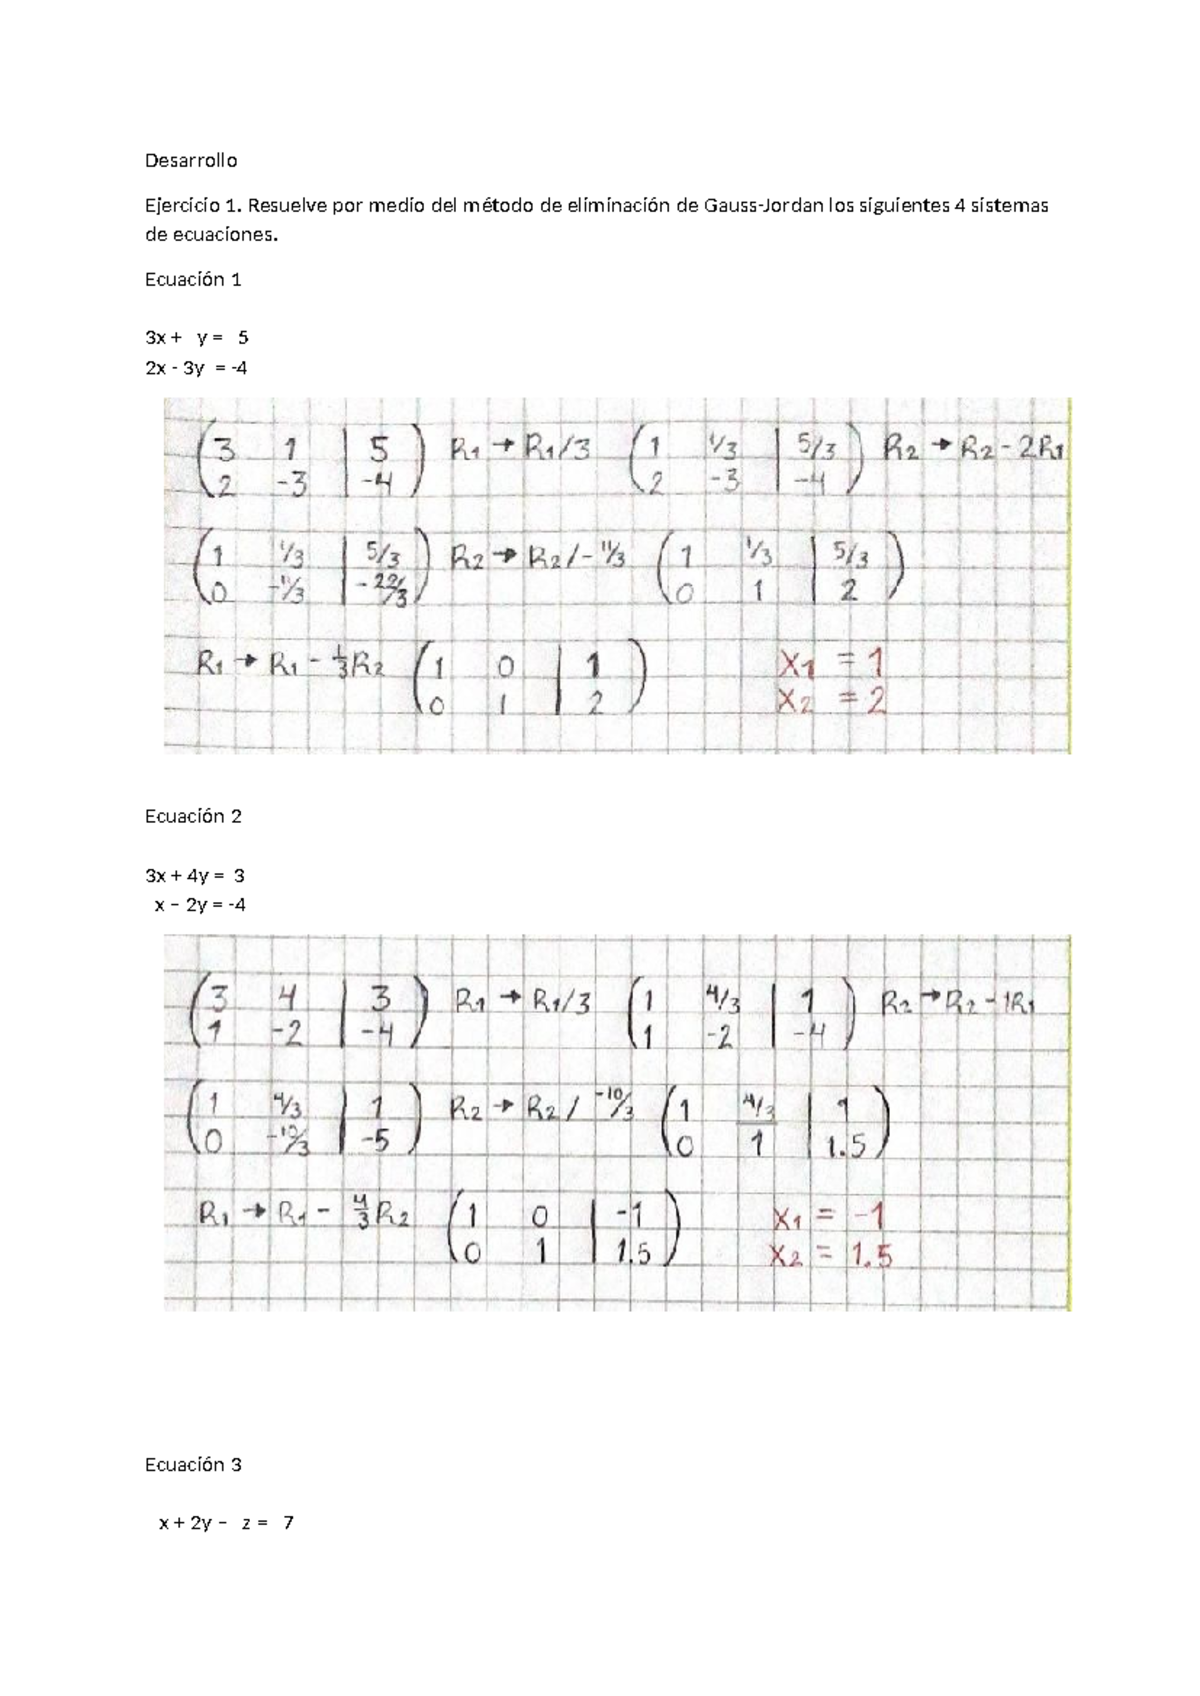 Desarrollo
Ejercicio 1. Resuelve por medio del método de eliminación de Gauss-Jordan los siguientes 4 sistemas
de ecuaciones.
Ecuación 1
3x + y = 5
2x - 3y = -4
(3 1 | 5) R1 → R1/3 (1 1/3 | 5/3) R2 → R2 - 2R1
(2 -3 | -4) (2 -3 | -4)
(1 1/3 | 5/3) R2 → R2 / - 11/3 (1 1/3 | 5/3)
(0 -11/3 | -22/3) (0 1 | 2)
R1 → R1 - 1/3 R2 (1 0 | 1) X1 = 1
(0 1 | 2) X2 = 2
Ecuación 2
3x + 4y = 3
x – 2y = -4
(3 4 | 3) R1 → R1/3 (1 4/3 | 1) R2 → R2 - 1R1
(1 -2 | -4) (1 -2 | -4)
(1 4/3 | 1) R2 → R2 / -10/3 (1 4/3 | 1)
(0 -10/3 | -5) (0 1 | 1.5)
R1 → R1 - 4/3 R2 (1 0 | -1) X1 = -1
(0 1 | 1.5) X2 = 1.5
Ecuación 3
x + 2y – z = 7